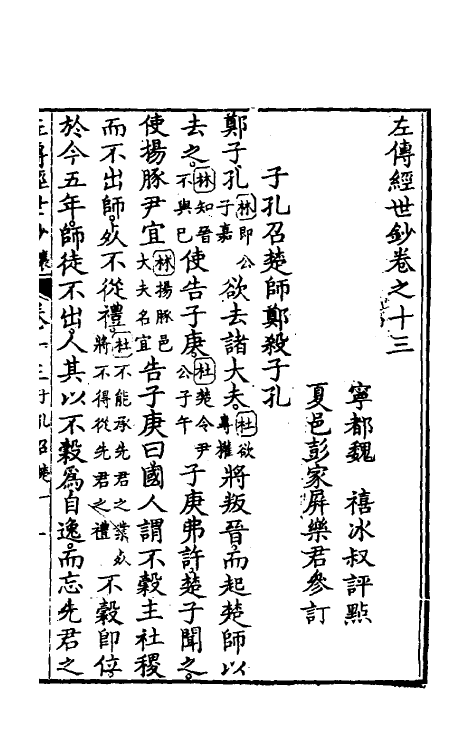 左傳經世鈔卷之十三
寧都魏　禧冰叔評點
夏邑彭家屛樂君參訂
子孔召楚師鄭殺子孔
鄭子孔林即公子嘉欲去諸大夫杜欲專權將叛晉而起楚師以
去之林知晉不與己使告子庚杜楚令尹公子午子庚弗許楚子聞之
使揚豚尹宜林揚豚邑大夫名宜告子庚曰國人謂不穀主社稷
而不出師死不從禮杜不能承先君之業死將不得從先君之禮不穀即位
於今五年師徒不出人其以不穀爲自逸而忘先君之
左傳經世鈔　卷十三子孔召楚　一